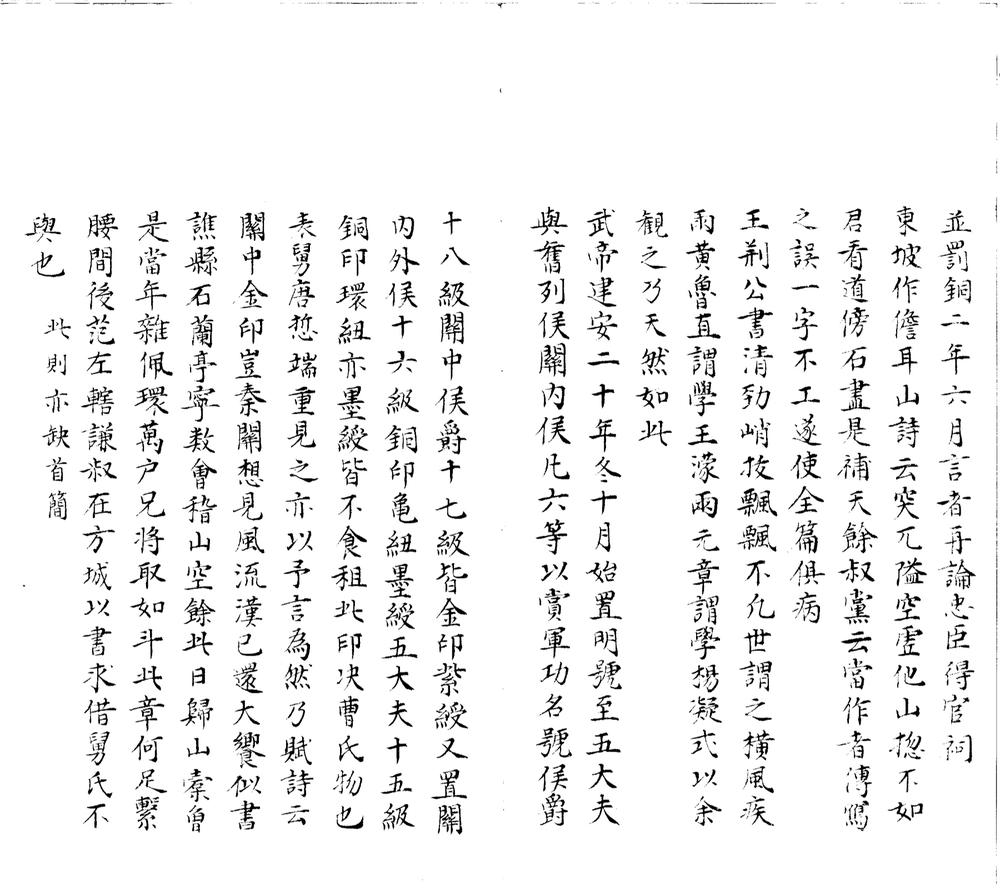 並罰銅二年六月言者再論忠臣得官祠
東坡作儋耳山詩云突兀隘空虛他山揔不如
君看道傍石盡是補天餘叔黨云當作者傳寫
之誤一字不工遂使全篇俱病
王荆公書清勁峭拔飄飄不凡世謂之橫風疾
雨黄魯直謂學王濛雨元章謂學楊凝式以余
觀之乃天然如此
武帝建安二十年冬十月始置明號至五大夫
與舊列侯關内侯凡六等以賞軍功名號侯爵
十八級關中侯爵十七級皆金印紫綬又置關
内外侯十六級銅印龜紐墨綬五大夫十五級
銅印環紐亦墨綬皆不食租此印决曹氏物也
表舅唐悊端重見之亦以予言為然乃賦詩云
關中金印豈秦關想見風流漢已還大饗似書
譙縣石蘭亭寧数會稽山空餘此日歸山橐曾
是當年雜佩環萬户兄將取如斗此章何足繫
腰間後范左轄謙叔在方城以書求借舅氏不
與也 此則亦缺首簡